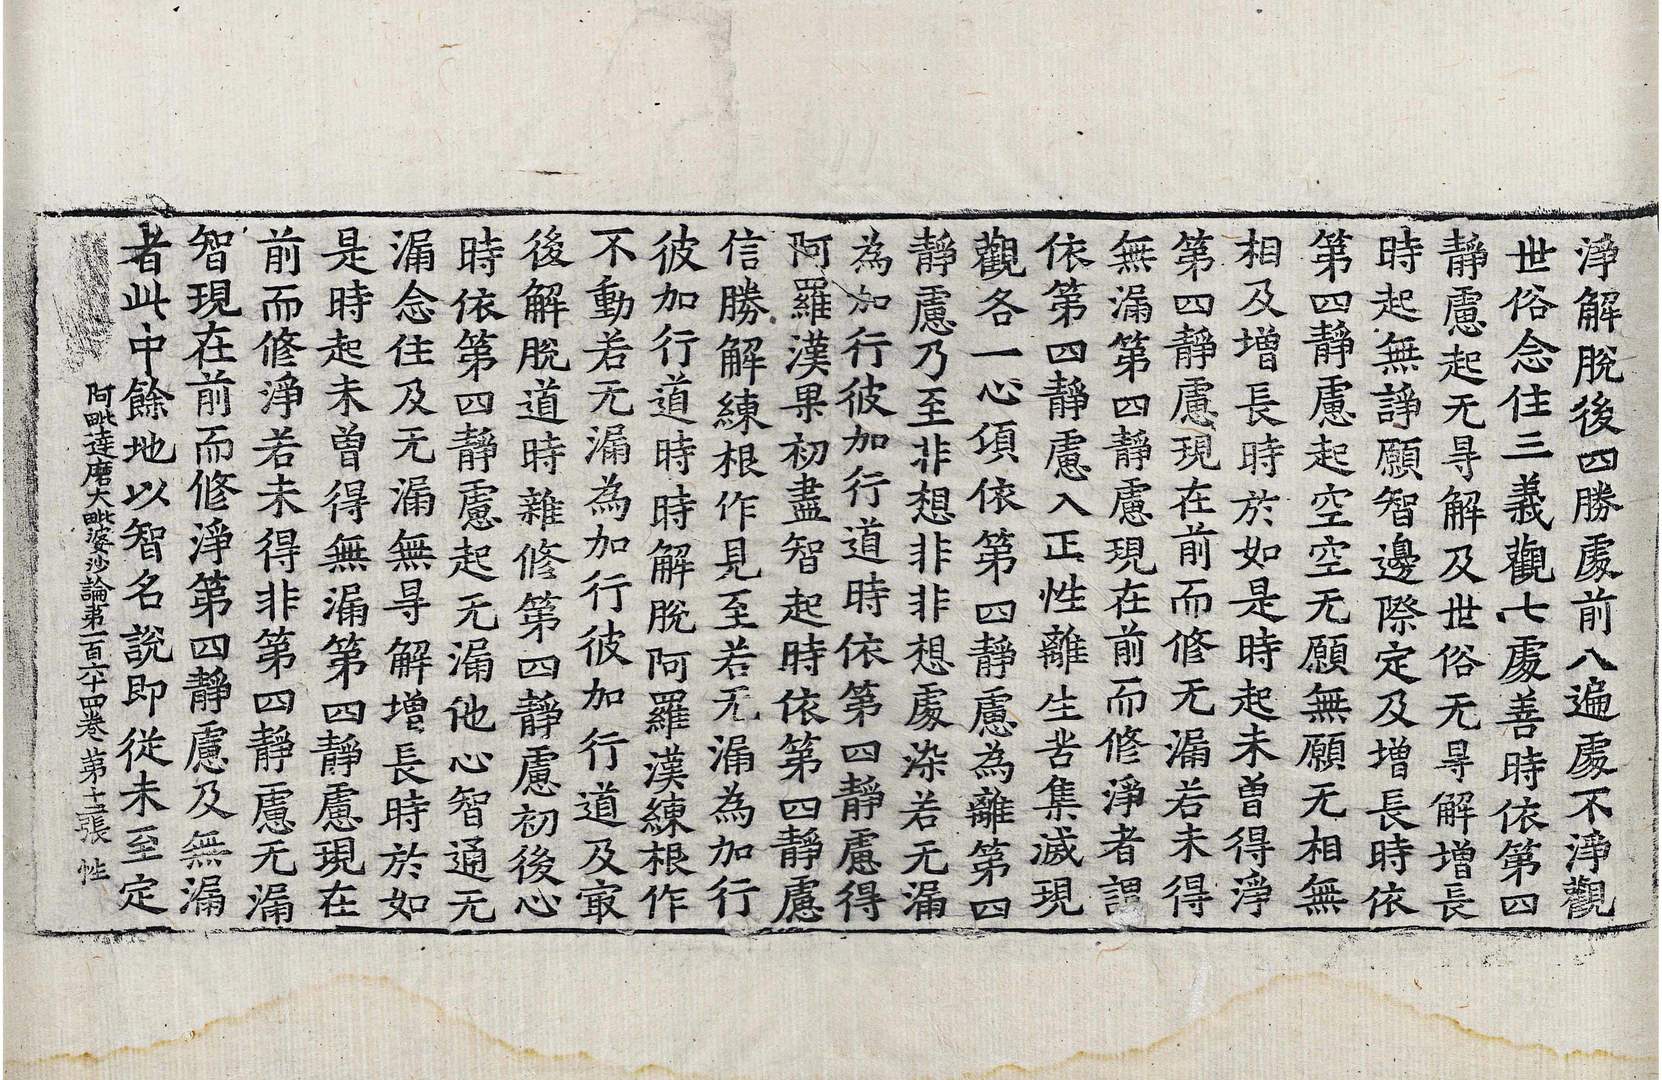 淨解脫後四勝處前八遍處不淨觀
世俗念住三義觀七處善時依第四
靜慮起无㝵解及世俗无㝵解增長
時起無諍願智邊際定及增長時依
第四靜慮起空空无願無願无相無
相及增長時於如是時起未曾得淨
第四靜慮現在前而修无漏若未得
無漏第四靜慮現在前而修淨者謂
依第四靜慮入正性離生苦集滅現
觀各一心傾依第四靜慮為離第四
靜慮乃至非想非非想處染若无漏
為加行彼加行道時依第四靜慮得
阿羅漢果初盡智起時依第四靜慮
信勝解練根作見至若无漏為加行
彼加行道時時解脫阿羅漢練根作
不動若无漏為加行彼加行道及㝡
後解脫道時雜修第四靜慮初後心
時依第四靜慮起无漏他心智通无
漏念住及无漏無㝵解增長時於如
是時起未曾得無漏第四靜慮現在
前而修淨若未得非第四靜慮无漏
智現在前而修淨第四靜慮及無漏
者此中餘地以智名說即從未至定
阿毗達磨大毗婆沙論第一百六十四卷 第十三張 性